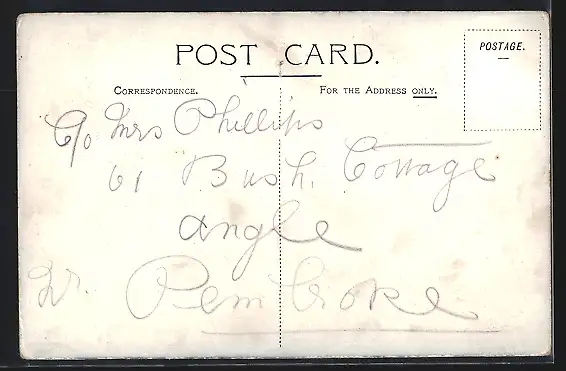 POST CARD.
POSTAGE.
CORRESPONDENCE.
FOR THE ADDRESS ONLY.
C/o Mrs Phillips
61 Bush. Cottage
Angle
Nr. Pembroke